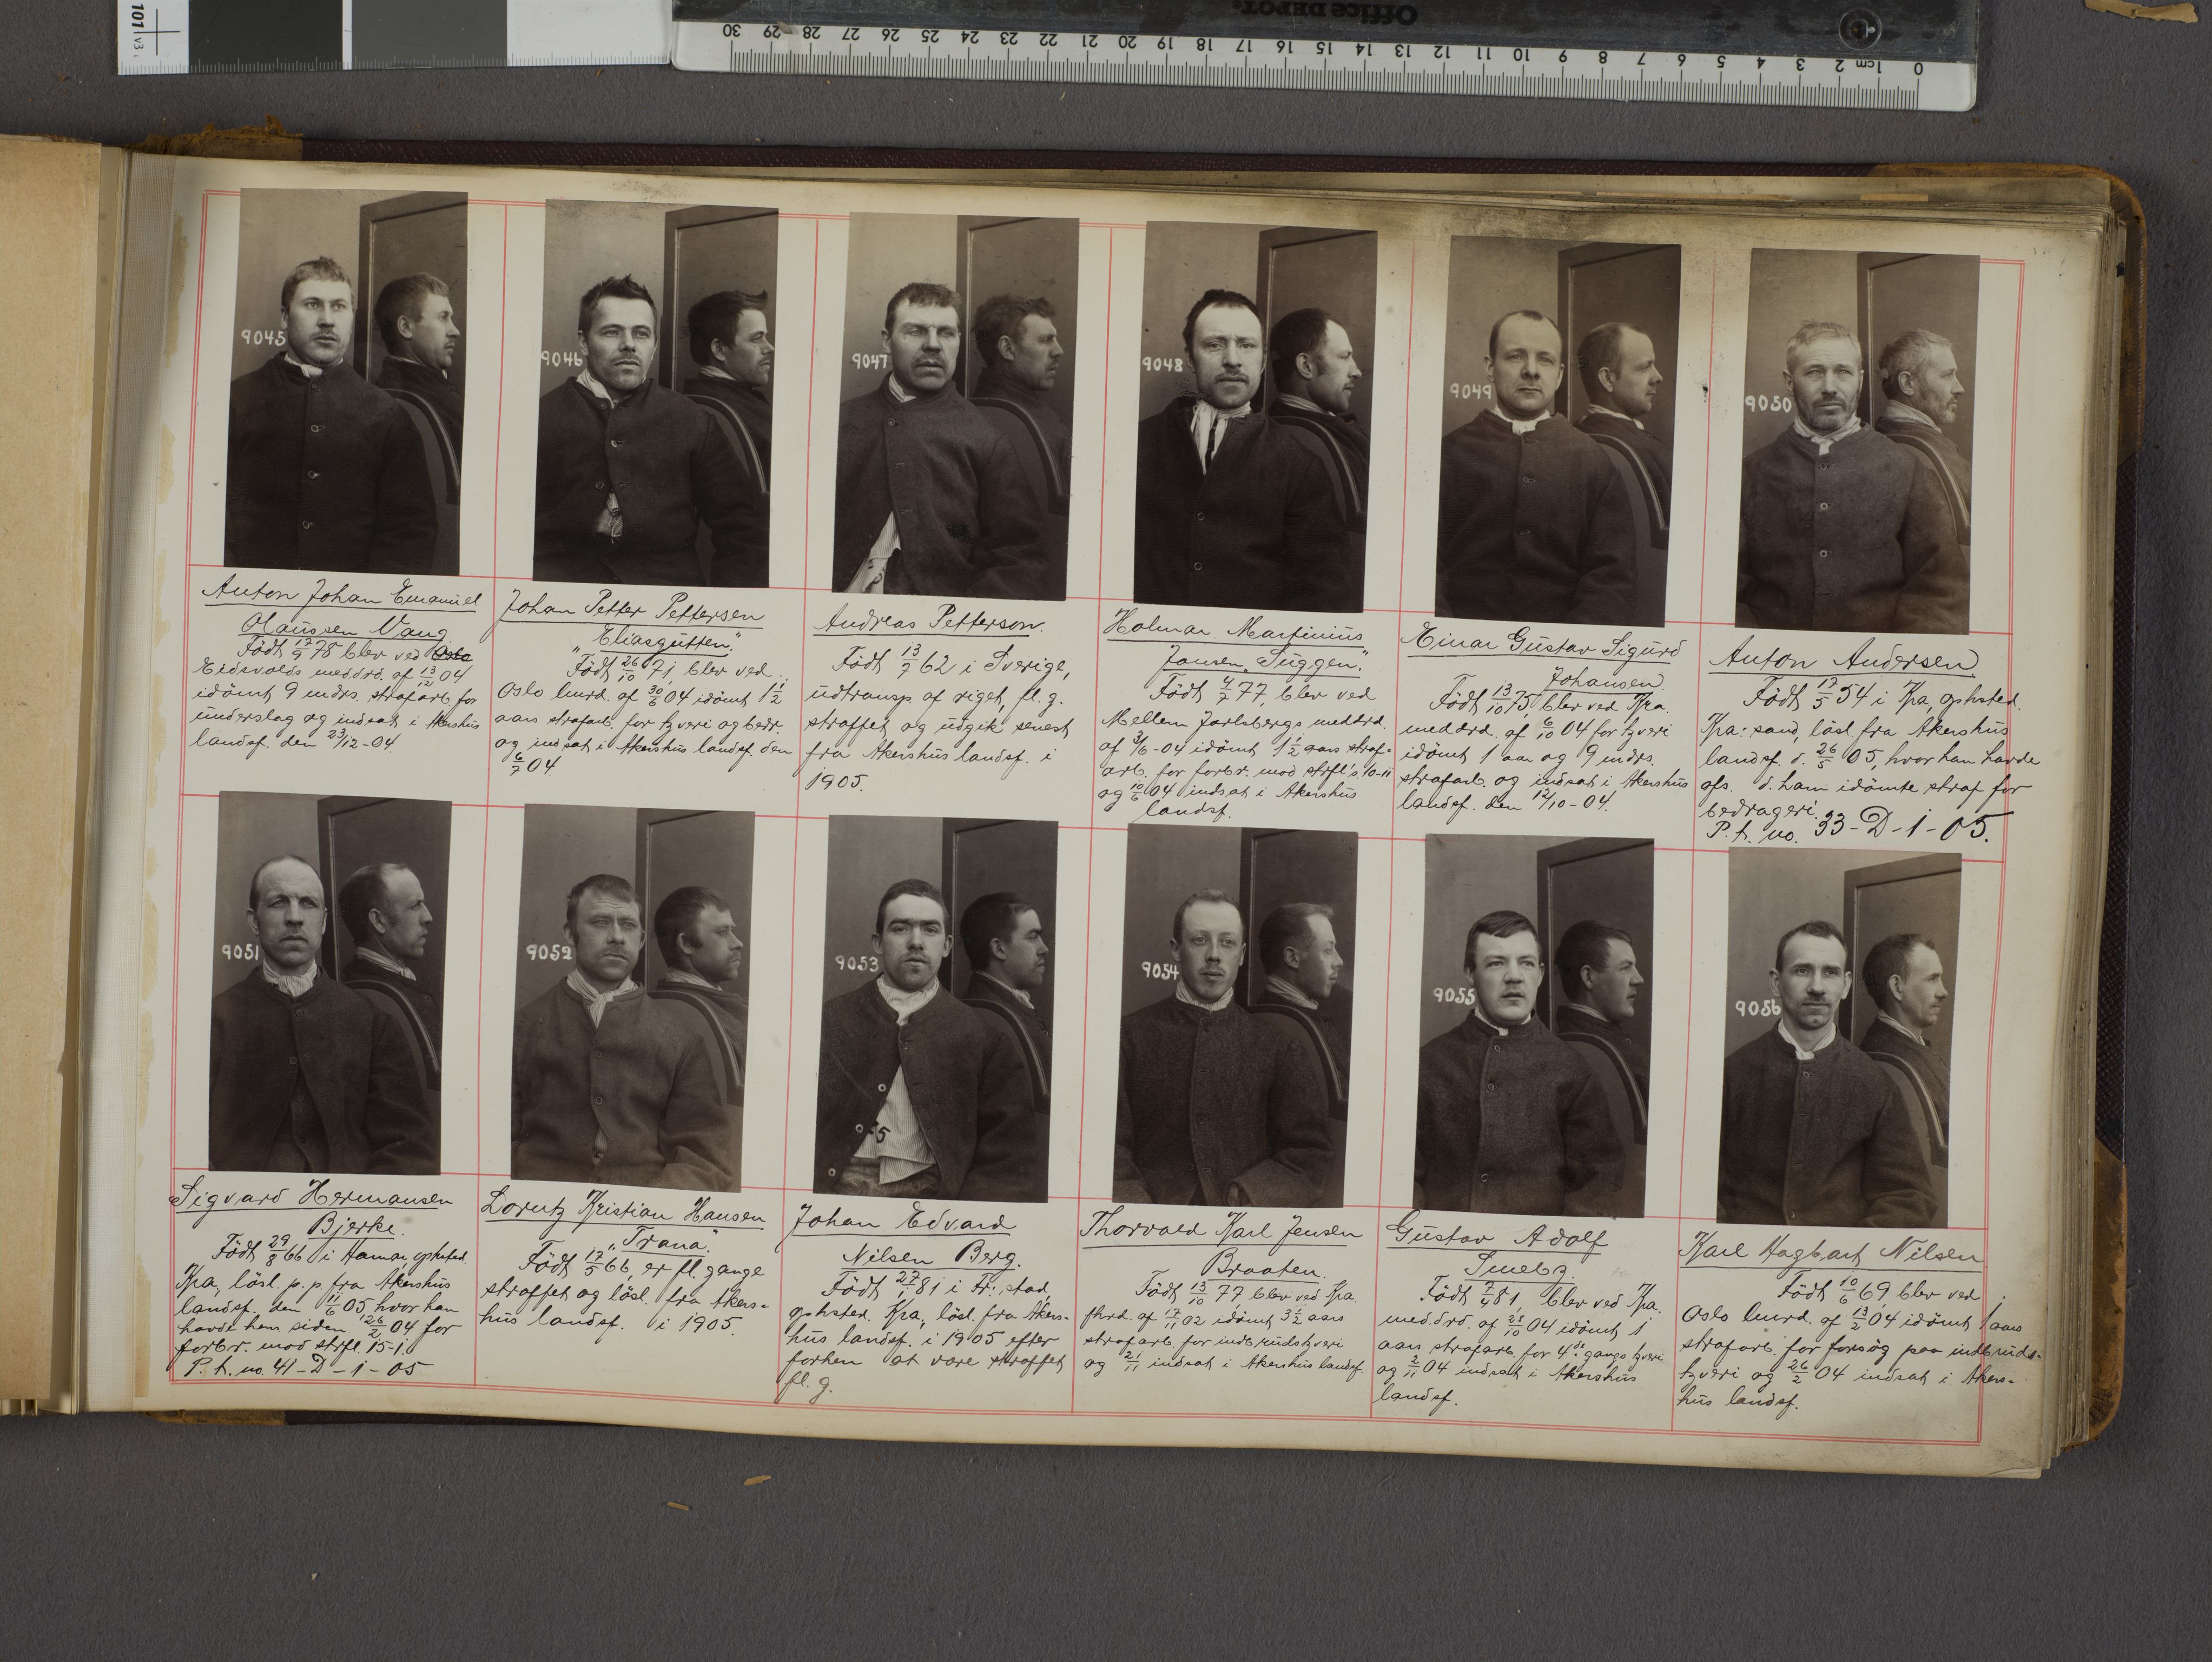 101 v3
Office DEPOT.
30 29 28 27 26 25 24 23 22 21 20 19 18 17 16 15 14 13 12 11 10 9 8 7 6 5 4 3 2 1cm 0
9045
Anton Johan Emanuel
Olaussen Vang
Födt 17/9 78 blev ved Oslo
Eidsvolds meddrd. af 13/12 04
idömt 9 mdrs. strafarb. for
underslag og indsat i Akershus
landsf. den 23/12-04.
9046
Johan Petter Pettersen
"Eliasgutten."
Födt 26/10 71, blev ved
Oslo lmrd. af 30/6 04 idömt 1 1/2
aars strafarb. for tyveri og bedr.
og indsat i Akershus landsf. den
6/7 04.
9047
Andreas Petterson.
Födt 13/7 62 i Sverige,
udtransp. af riget, fl. g.
straffet og udgik senest
fra Akershus landsf. i
1905.
9048
Holmar Martinius
Jansen "Suggen."
Födt 4/7 77, blev ved
Mellem Jarlsbergs meddrd.
af 3/6-04 idömt 1 1/2 aars straf-
arb. for forbr. mod strfl's 10-11
og 10/6 04 indsat i Akershus
landsf.
9049
Einar Gustav Sigurd
Johansen
Födt 13/10 75, blev ved Kra.
meddrd. af 6/10 04 for tyveri
idömt 1 aar og 9 mdrs.
strafarb. og indsat i Akershus
landsf. den 12/10-04.
9050
Anton Andersen
Födt 17/5 54 i Kra, ophsted.
Kra: sand, lösl. fra Akershus
landsf. d. 26/5 05, hvor han havde
afs. d. ham idömte straf for
bedrageri.
P. h. no. 33-D-1-05.
9051
Sigvard Hermansen
Bjerke.
Födt 29/8 66 i Hamar, ophsted.
Kra, lösl. p. p. fra Akershus
landsf. den 11/6 05 hvor han
havde hen siden 26/2 04 for
forbr. mod strfl. 15-1.
P. h. no. 41-D-1-05
9052
Lorntz Kristian Hansen
"Trana."
Födt 17/5 66, er fl. gange
straffet og lösl. fra Akers-
hus landsf. i 1905.
9053
Johan Edvard
Nilsen Berg.
Födt 27/1 81 i Fr: stad,
ophsted. Kra, lösl. fra Akers-
hus landsf. i 1905 efter
forhen at være straffet
fl. g.
9054
Thorvald Karl Jensen
Braaten.
Födt 13/10 77, blev ved Kra.
fhrd. af 17/11 02 idömt 3 1/2 aars
strafarb. for indbrudstyveri
og 21/11 indsat i Akershus landsf.
9055
Gustav Adolf
Födt 7/4 81, blev ved Kra.
meddrd. af 28/10 04 idömt 1
aars strafarb. for 4de gangs tyveri
og 2/11 04 indsat i Akershus
landsf.
9056
Karl Hagbart Nilsen
Födt 10/6 69 blev ved
Oslo lmrd. af 13/2 04 idömt 1 aars
strafarb. for forsög paa indbruds-
tyveri og 26/2 04 indsat i Akers-
hus landsf.